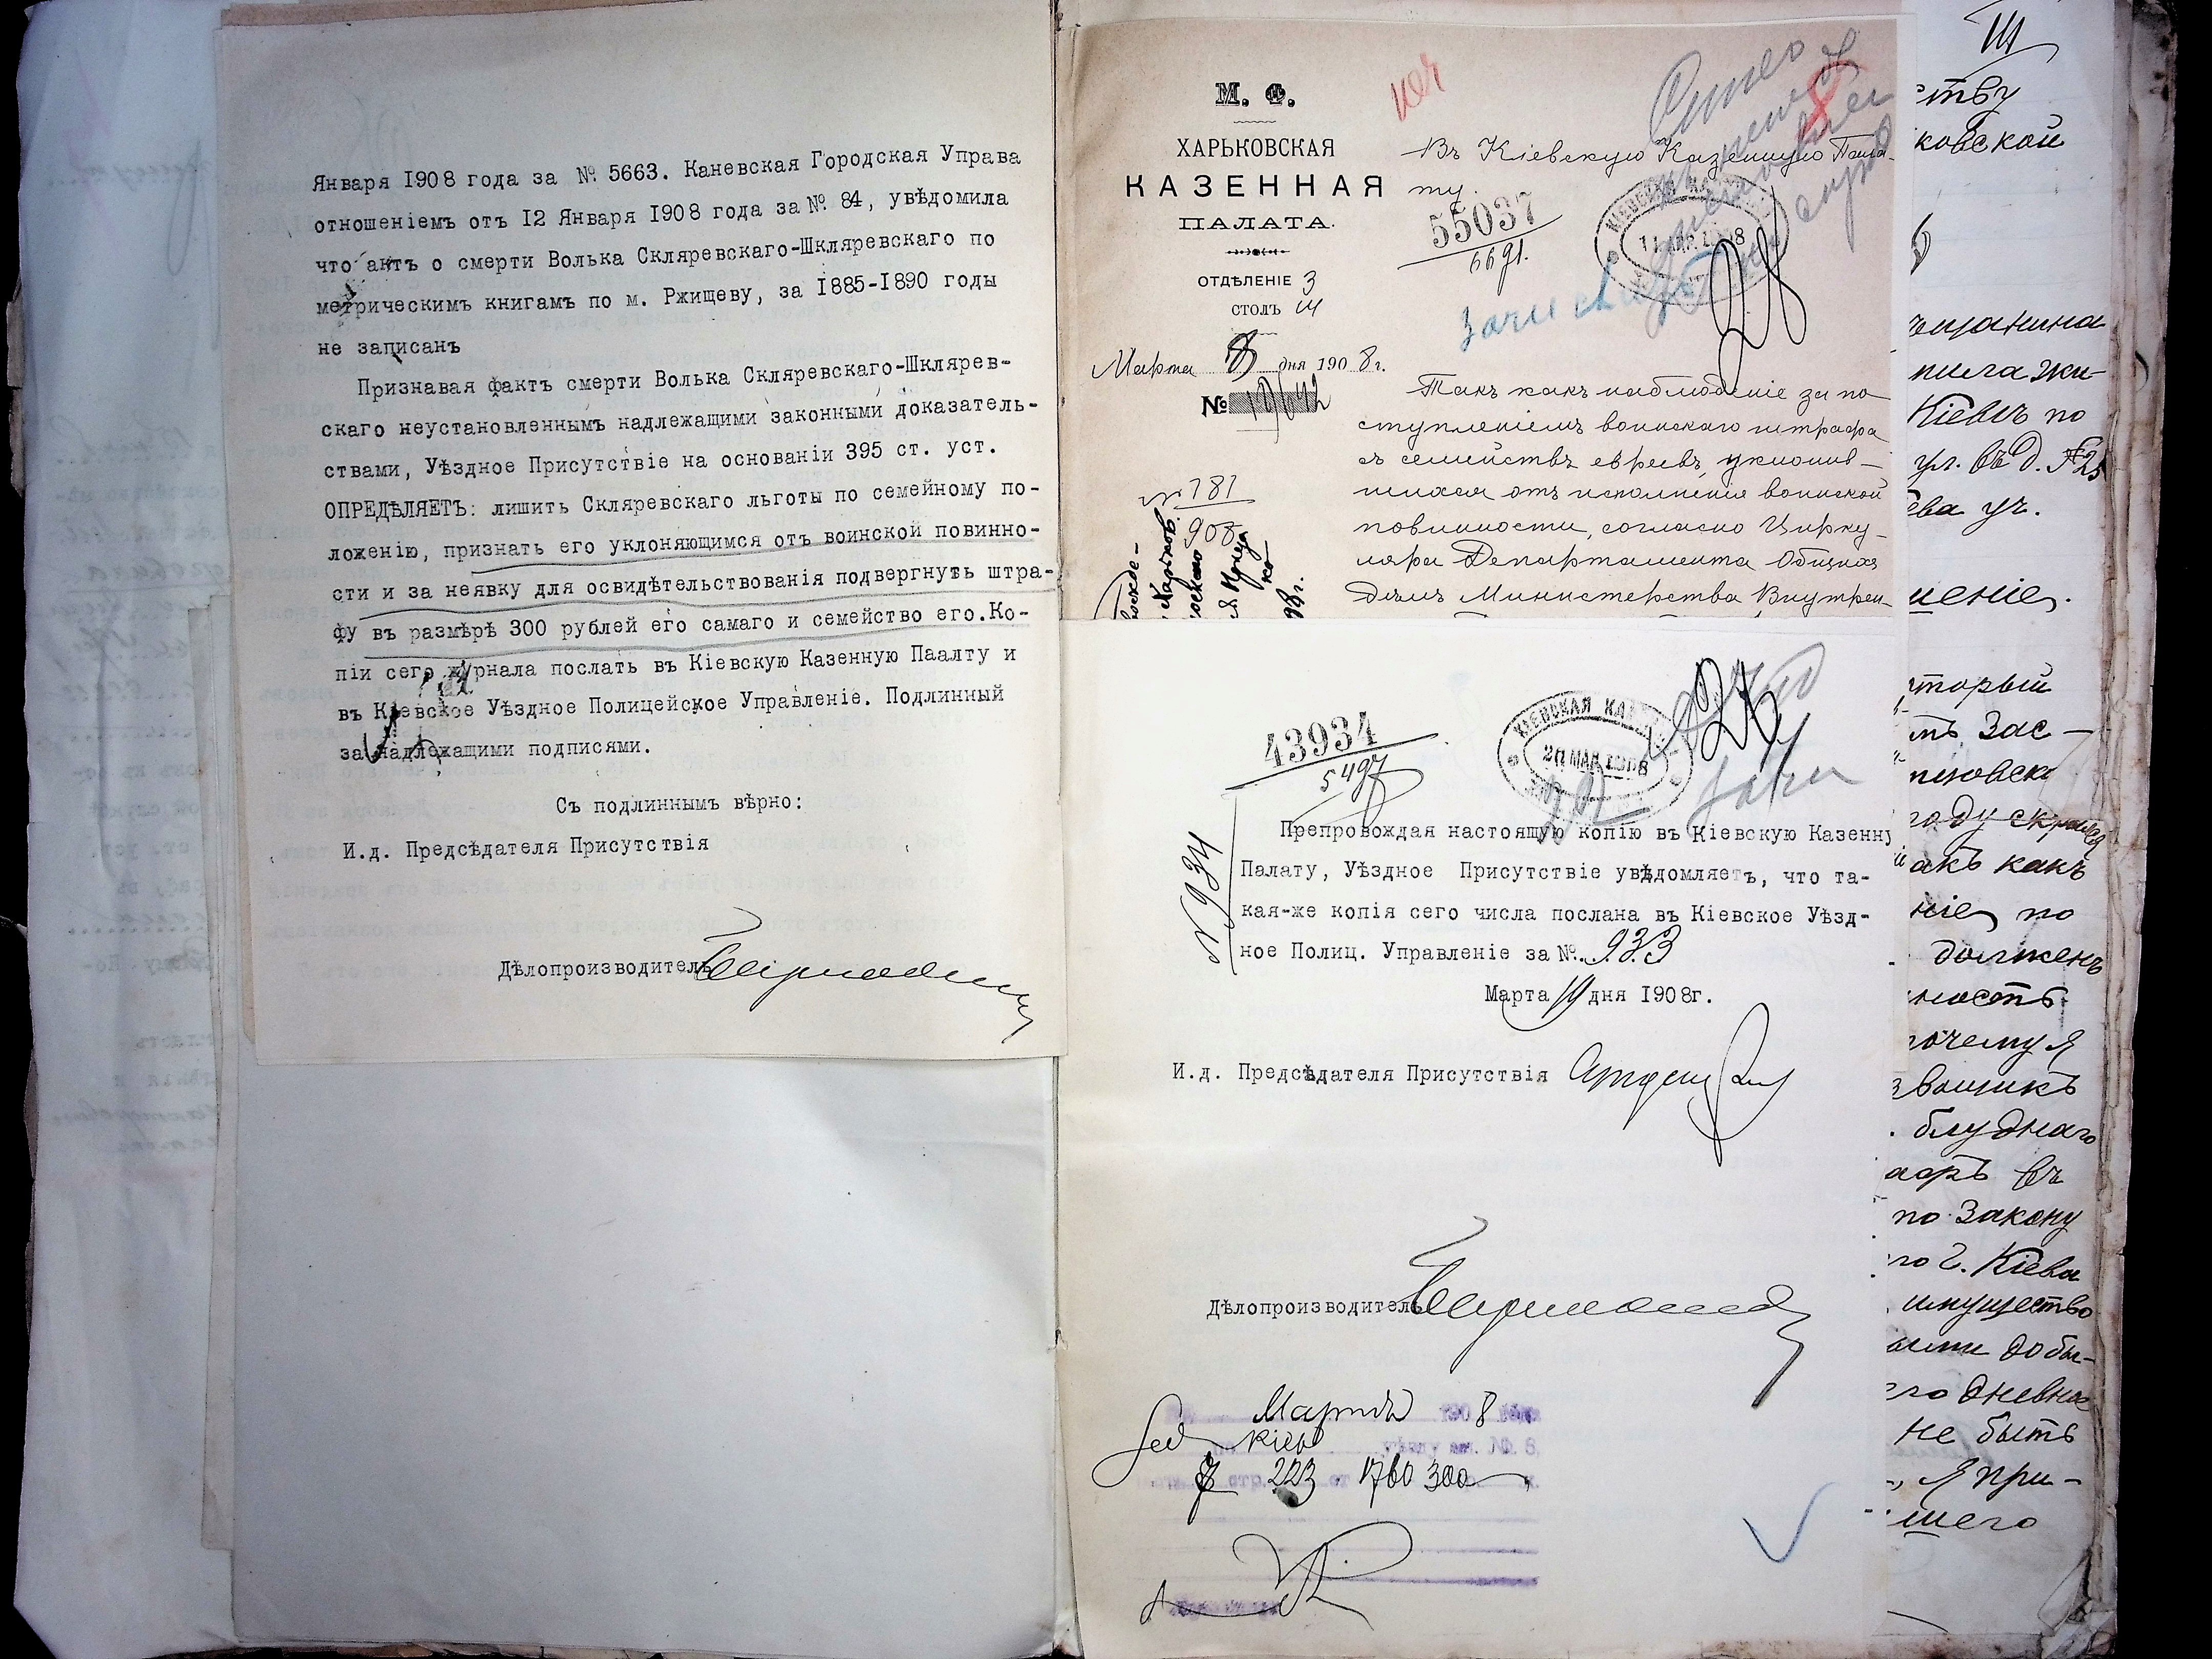 Января 1908 года за № 5663. Каневская Городская Управа
отношеніемъ отъ 12 Января 1908 года за № 84, увѣдомила
что актъ о смерти Волька Скляревскаго-Шкляревскаго по
метрическимъ книгамъ по м. Ржищеву, за 1885-1890 годы
не записанъ
Признавая фактъ смерти Волька Скляревскаго-Шклярев-
скаго неустановленнымъ надлежащими законными доказатель-
ствами, Уѣздное Присутствіе на основаніи 395 ст. уст.
ОПРЕДѢЛЯЕТЪ: лишить Скляревскаго льготы по семейному по-
ложенію, признать его уклоняющимся отъ воинской повинно-
сти и за неявку для освидѣтельствованія подвергнуть штра-
фу въ размѣрѣ 300 рублей его самаго и семейство его. Ко-
піи сего журнала послать въ Кіевскую Казенную Паалту и
въ Кіевское Уѣздное Полицейское Управленіе. Подлинный
за надлежащими подписями.
Съ подлиннымъ вѣрно:
И.д. Предсѣдателя Присутствія
Дѣлопроизводитель
М. Ф.
ХАРЬКОВСКАЯ
КАЗЕННАЯ
ПАЛАТА.
ОТДѢЛЕНІЕ 3
СТОЛЪ III
Марта 8 дня 1908 г.
№ 19642
№ 781
908
Въ Кіевскую Казенную Пала-
ту.
55037
6691.
Такъ какъ наблюденіе за по-
ступленіемъ воинскаго штрафа
съ семействъ евреевъ, уклонив-
шихся отъ исполненія воинской
повинности, согласно Цирку-
ляра Департамента Общихъ
Дѣлъ Министерства Внутрен-
43934
5497
КІЕВСКАЯ КАЗ
20 МАР 1908
Препровождая настоящую копію въ Кіевскую Казенну
Палату, Уѣздное Присутствіе увѣдомляетъ, что та-
кая-же копія сего числа послана въ Кіевское Уѣзд-
ное Полиц. Управленіе за № 933
№ 934
Марта 19 дня 1908г.
И.д. Предсѣдателя Присутствія
Дѣлопроизводитель
Мартъ 1908
Кіев
223 1760 300
ству
ковской
Кіевѣ по
ул. въ д. № 25
ева уч.
шеніе.
торый
году скрылся
акъ какъ
ніе по
долженъ
ность
почему я
звощикъ
блуднаго
афъ въ
по закону
го г. Кіева
имущество
ыми добы-
его дневное
не быть
я при-
шего